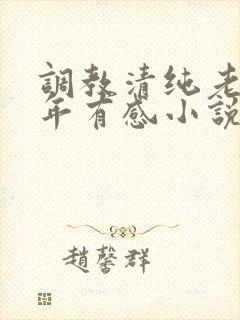 調教清纯老
年有感小說
趙馨群